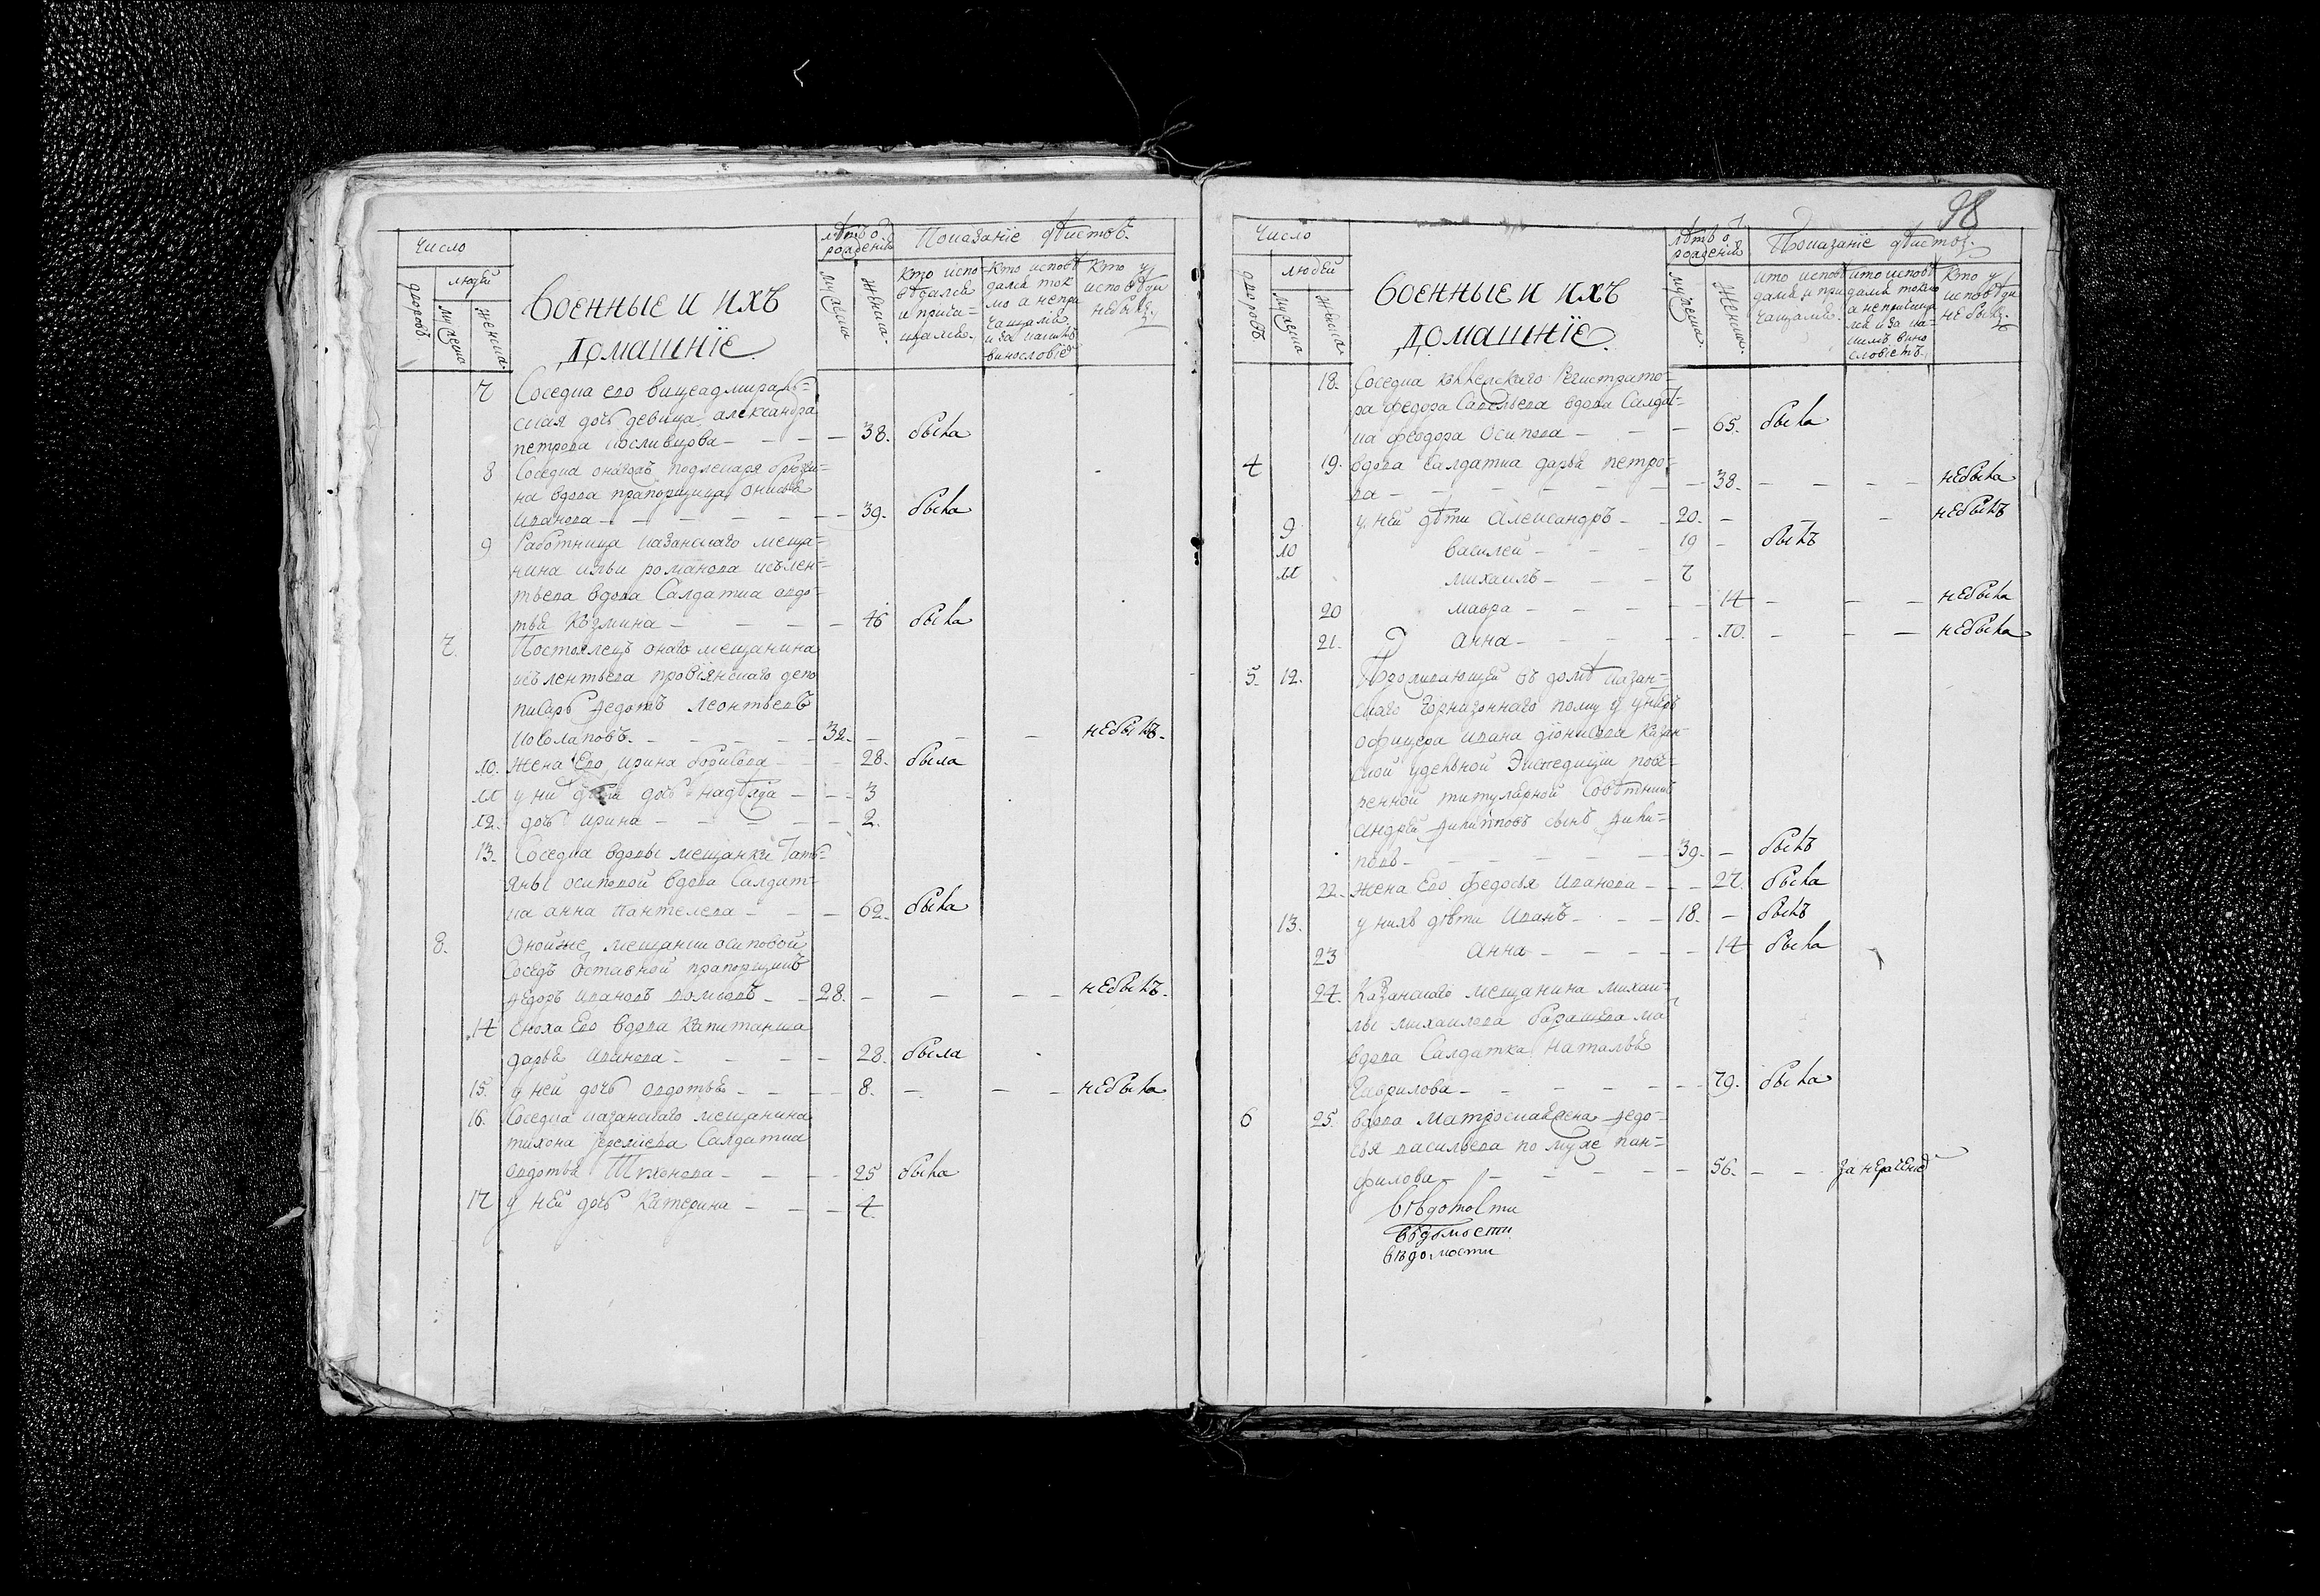 Число
людей
дворовъ
мужеска
женска
Военные и ихъ
домашніе
лѣтъ о
рожденіе
мужеска
женска
Показаніе дѣистовъ
Кто испо-
вѣдалсѧ
и прича-
щалсѧ.
Кто исповѣ
далсѧ ток
мо а не при
чащалсѧ
и за какимъ
винословіемъ
Кто у
исповѣди
не былъ
7 Соседка его вицеадмираль=
ская дочь девица александра
петрова - - - 38. была
8 Соседка
на вдова прапорщица Онисья
иванова - - - - - 39. была
9 Работница казанскаго меща=
нина ильи романова
тьева вдова Салдатка авдо=
тья Козмина - - - 46 была
7. Постоялецъ онаго мещанина
провіянскаго депо
писарь Федотъ Леонтьевъ
- - - - - 32. - - - не былъ.
10. жена Его ирина борисова - - 28. была
11 у ни дѣти дочь надѣжда - - - 3
12. дочь ирина - - - - - 2.
13. Соседка вдовы мещанки Тать=
яны осиповой вдова Салдат=
ка анна Пантелева - - - 62. была
8. Онойже мещанки осиповой
Соседъ Отставной прапорщикъ
Федоръ ивановъ - - 28. - - - - не былъ.
14 сноха Его вдова Капитанша
дарья иванова - - - - 28. была
15. у ней дочь авдотья - - - - 8. - - - не была
16. Соседка казанскаго мещанина
тихона Еремѣева Салдатка
авдотья Тихонова - - - - 25 была
17 у ней дочь Катерина - - - 4.
98
Число
людей
дворовъ
мужеска
женска
Военные и ихъ
домашніе.
лѣтъ о
рожденіе
мужеска.
женска.
Показаніе дѣистов.
кто исповѣ
далсѧ и при
чащалсѧ.
кто исповѣ
далсѧ токмо
а не причаща
лсѧ и за ка=
кимъ вино
словіемъ.
Кто у
исповѣди
не былъ
18. Соседка Регистрато=
ра федора Савельева вдова Салдат=
ка феодора Осипова - - - 65. была
4 19. вдова Салдатка дарья петро=
ва - - - - - - 38. - - - - не была
9 у ней дѣти Александръ - - 20. - - не былъ
10 василей - - - 19 - былъ
11 михаилъ - - - 7
20 мавра - - - - - 14 - - - не была
21. анна - - - - - 10. - - - не была
5. 12. Проживающей въ домѣ казан=
скаго Горнизоннаго полку унтеръ
офицера ивана діонисова Казан=
ской удельной Экспедиціи пове=
ренной титулярной Совѣтникъ
андрей Филиповъ сынъ Фили=
повъ - - - - - - 39. - былъ
22. жена Его федосья иванова - - - 27. была
13. у нихъ дѣти иванъ - - - 18. - былъ
23 анна - - - - - 14 была
24. Казанскаго мещанина михаи=
лы михаилова барашева ма
вдова Салдатка Наталья
Гаврилова - - - - - - 79. была
6 25. вдова Матроска жена Федо=
сья васильева по муже пан=
филова - - - - - 56. - - за нераченіе
вѣдомости
вѣдомости
вѣдомости